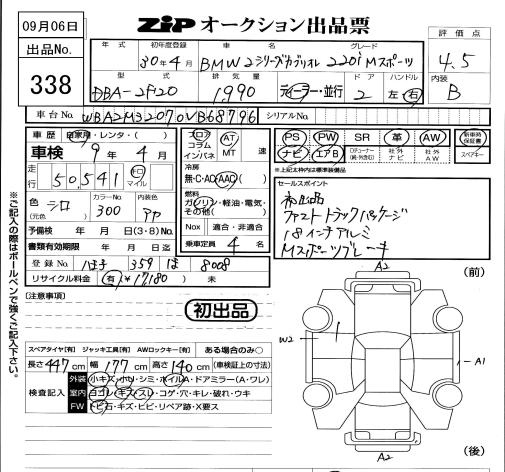 09月06日
ZIP オークション出品票
出品No.
338
年式 初年度登録 車名 グレード
30年4月 BMW2シリーズカブリオレ 220i Mスポーツ
型式 排気量 ドア ハンドル
DBA-2F20 1,990 ディーラー・並行 2 左 右
評価点
4.5
内装
B
車台No. WBA2M32070VB68796 シリアルNo.
車歴 自家用・レンタ・( )
車検 9年4月
走行 50,541 キロ マイル
色 シロ (元色) カラーNo. 300 内装色 アカ
予備検 年 月 日(3・8)No.
書類有効期限 年 月 日迄
登録No. 359 は 8008
リサイクル料金 有 ¥17,180 未
フロア コラム インパネ AT MT 速
冷房 無・C・AC・AAC( )
燃料 ガソリン・軽油・電気・その他( )
Nox 適合・非適合
乗車定員 4 名
PS PW SR 革 AW 新車時保証書
ナビ エアB 社外ナビ 社外AW スペアキー
※上記太枠内は標準装備品
セールスポイント
初出品
ファストトラックパッケージ
18インチアルミ
Mスポーツブレーキ
※ご記入の際はボールペンで強くご記入下さい。
[注意事項]
初出品
スペアタイヤ[有] ジャッキ工具[有] AWロックキー[有] ある場合のみ○
長さ 447 cm 幅 177 cm 高さ 140 cm (車検証上の寸法)
検査記入
外装 小キズ・小凹・シミ・ホイルA・ドアミラー(A・ワレ)
室内 ヨゴレ・キズ・スレ・コゲ・穴・キレ・破れ・ウキ
FW トビ石・キズ・ヒビ・リペア跡・X要ス
A2
(前)
W2
A1
A2
(後)